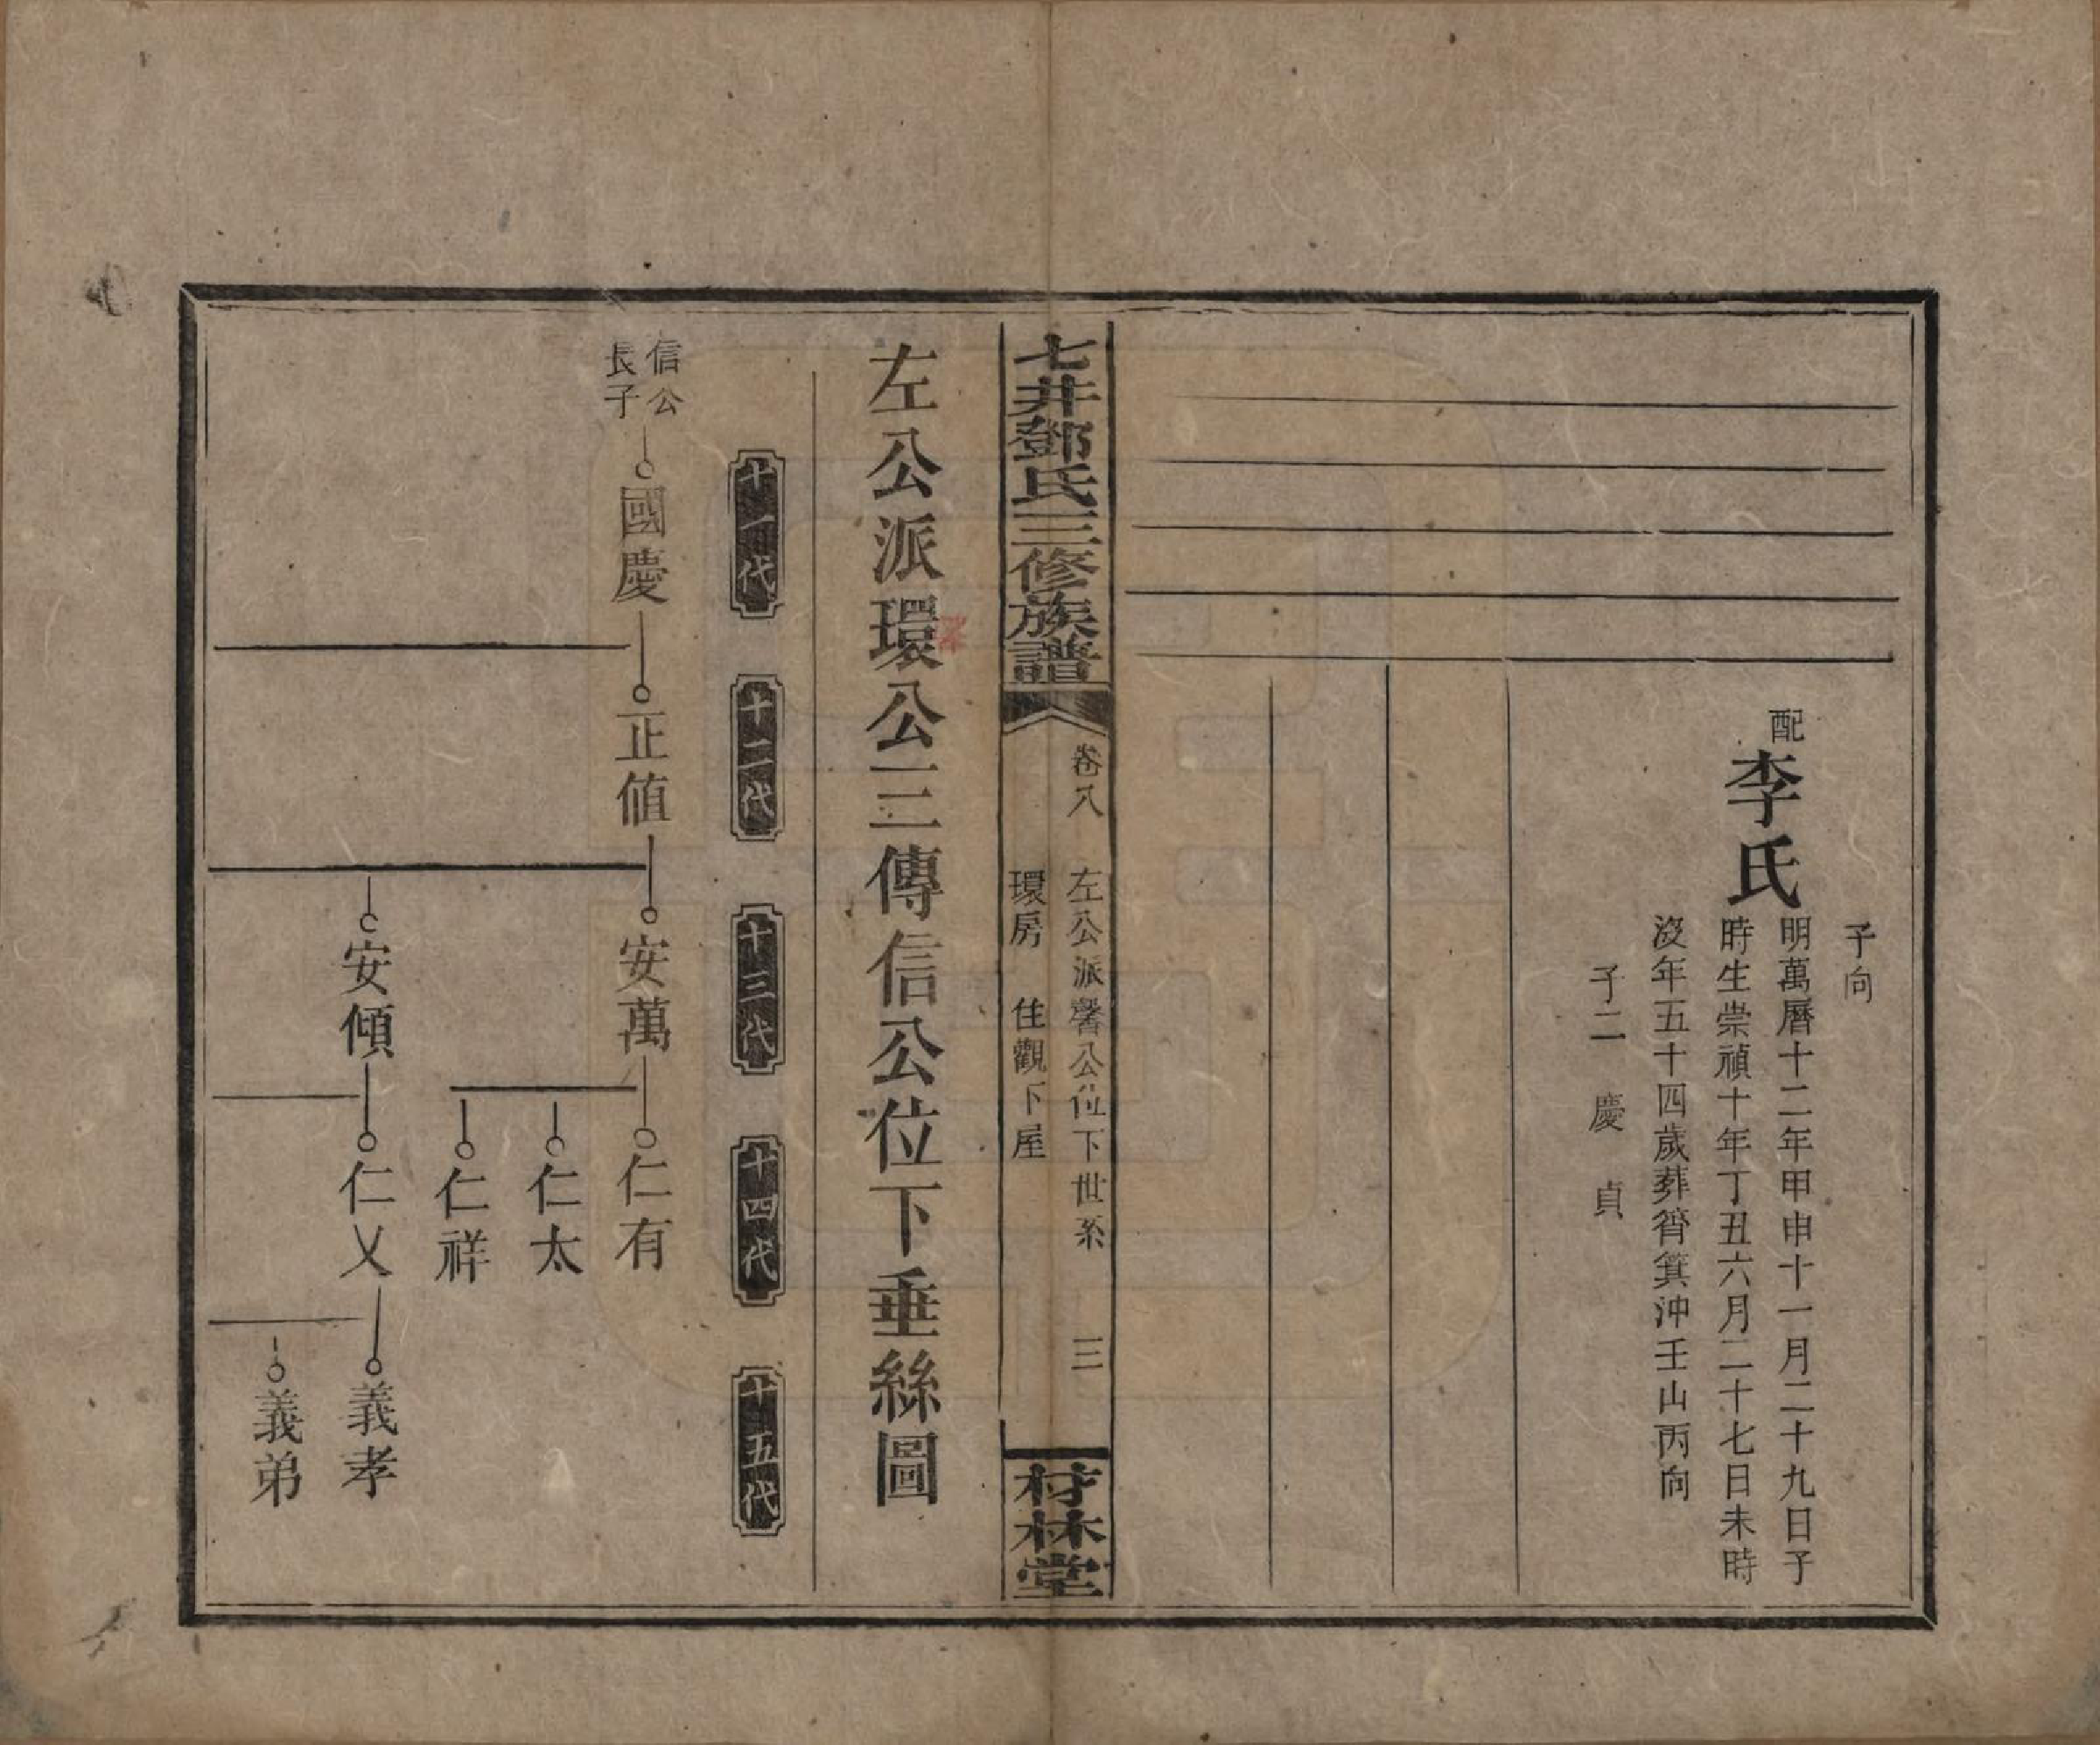 子向
配李氏
明萬曆十二年甲申十一月二十九日子
時生崇禎十年丁丑六月二十七日未時
沒年五十四歲葬筲箕沖壬山丙向
子二　慶　貞
七井鄧氏三修族譜
卷八　左公派馨公位下世系　三
環房　住觀下屋
材林堂
左公派環公三傳信公位下垂絲圖
十一代
十二代
十三代
十四代
十五代
信公
長子
國慶
正値
安萬
仁有
仁太
仁祥
安傾
仁乂
義孝
義弟